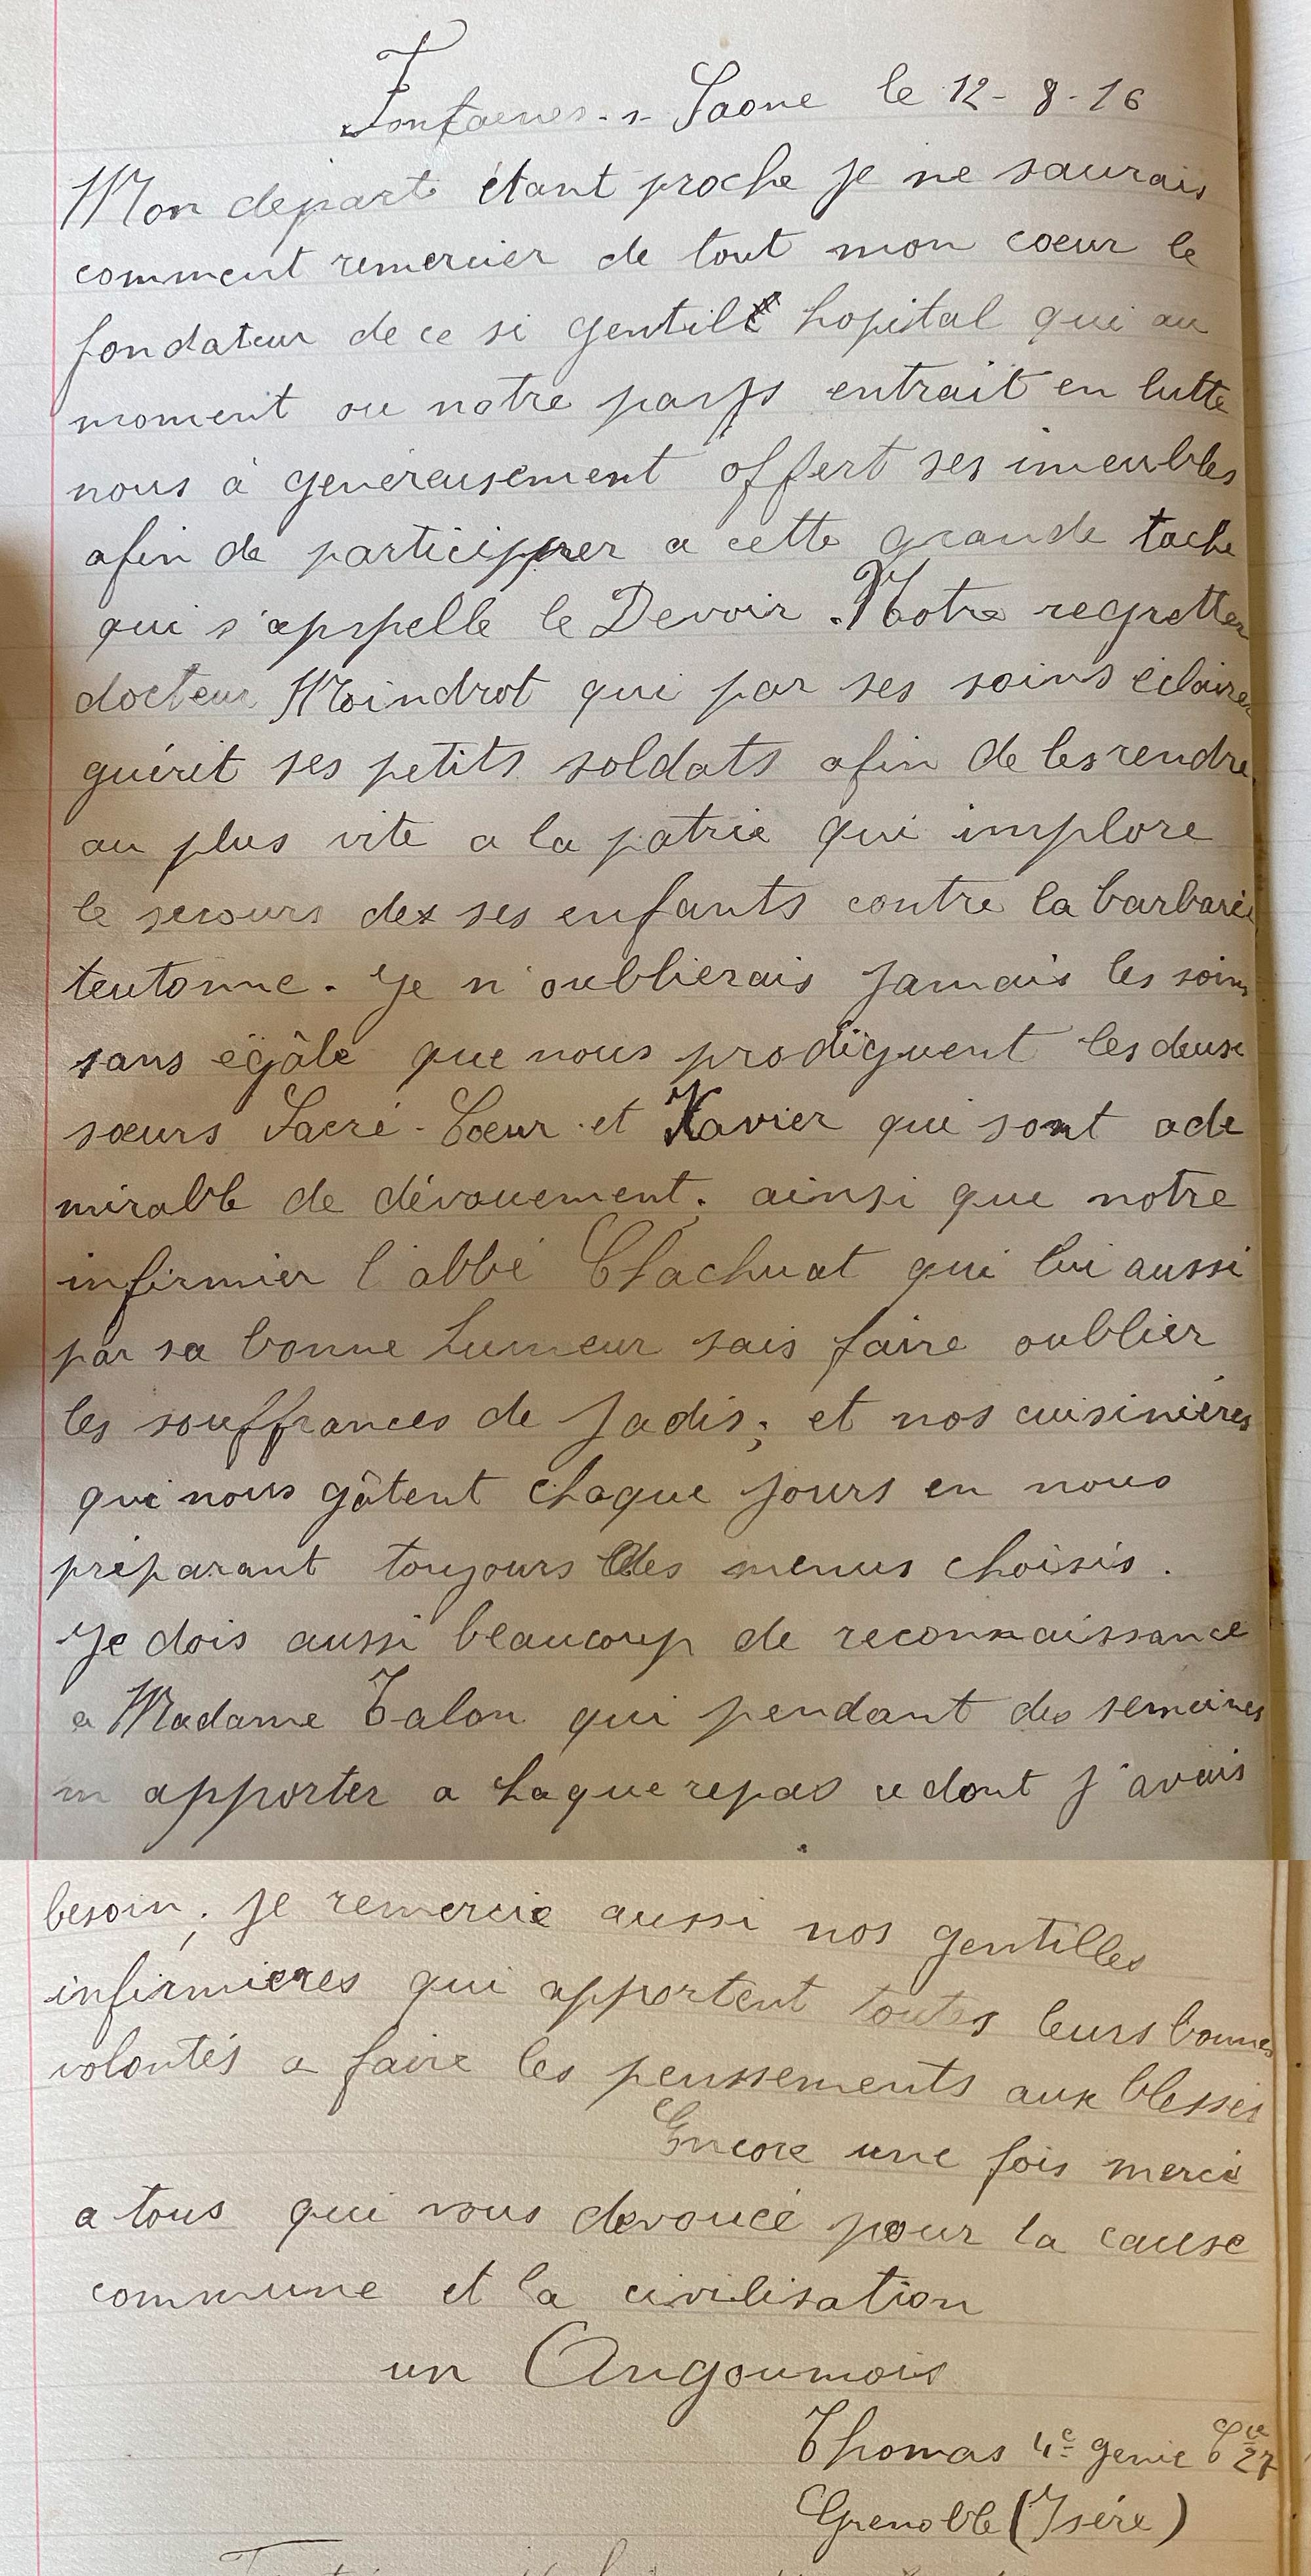 Fontaenes. s- Saone le 12- 8- 16
Mon depart étant proche je ne saurais
comment remercier de tout mon coeur le
fondateur de ce si gentil hopital qui au
moment ou notre pays entrait en lutte
nous à genereusement offert ses imeubles
afin de participper a cette grande tache
qui s'appelle le Devoir. Notre regretter
docteur Moindrot qui par ses soins éclairer
guérit ses petits soldats afin de les rendre
au plus vite a la patrie qui implore
le secours de ses enfants contre la barbarie
teutonne. Je n'oublierais jamais les soins
sans égâle que nous prodiguent les deux
sœurs Sacré-Cœur et Xavier qui sont ade
mirable de dévouement; ainsi que notre
infirmier l'abbé Chachuat qui lui aussi
par sa bonne humeur sais faire oublier
les souffrances de jadis; et nos cuisinières
qui nous gâtent chaque jours en nous
préparant toujours des menus choisis.
Je dois aussi beaucoup de reconnaissance
a Madame Talon qui pendant des semaines
m apporter a haque repas ce dont j'avais
besoin; je remercie aussi nos gentilles
infirmieres qui apportent toutes leurs bonnes
volontés a faire les penssements aux blessés
Encore une fois merci
a tous qui vous devouéé pour la cause
commune et la civilisation
un Angoumois
Thomas 4e genie Cie 27
Grenoble (Isère)